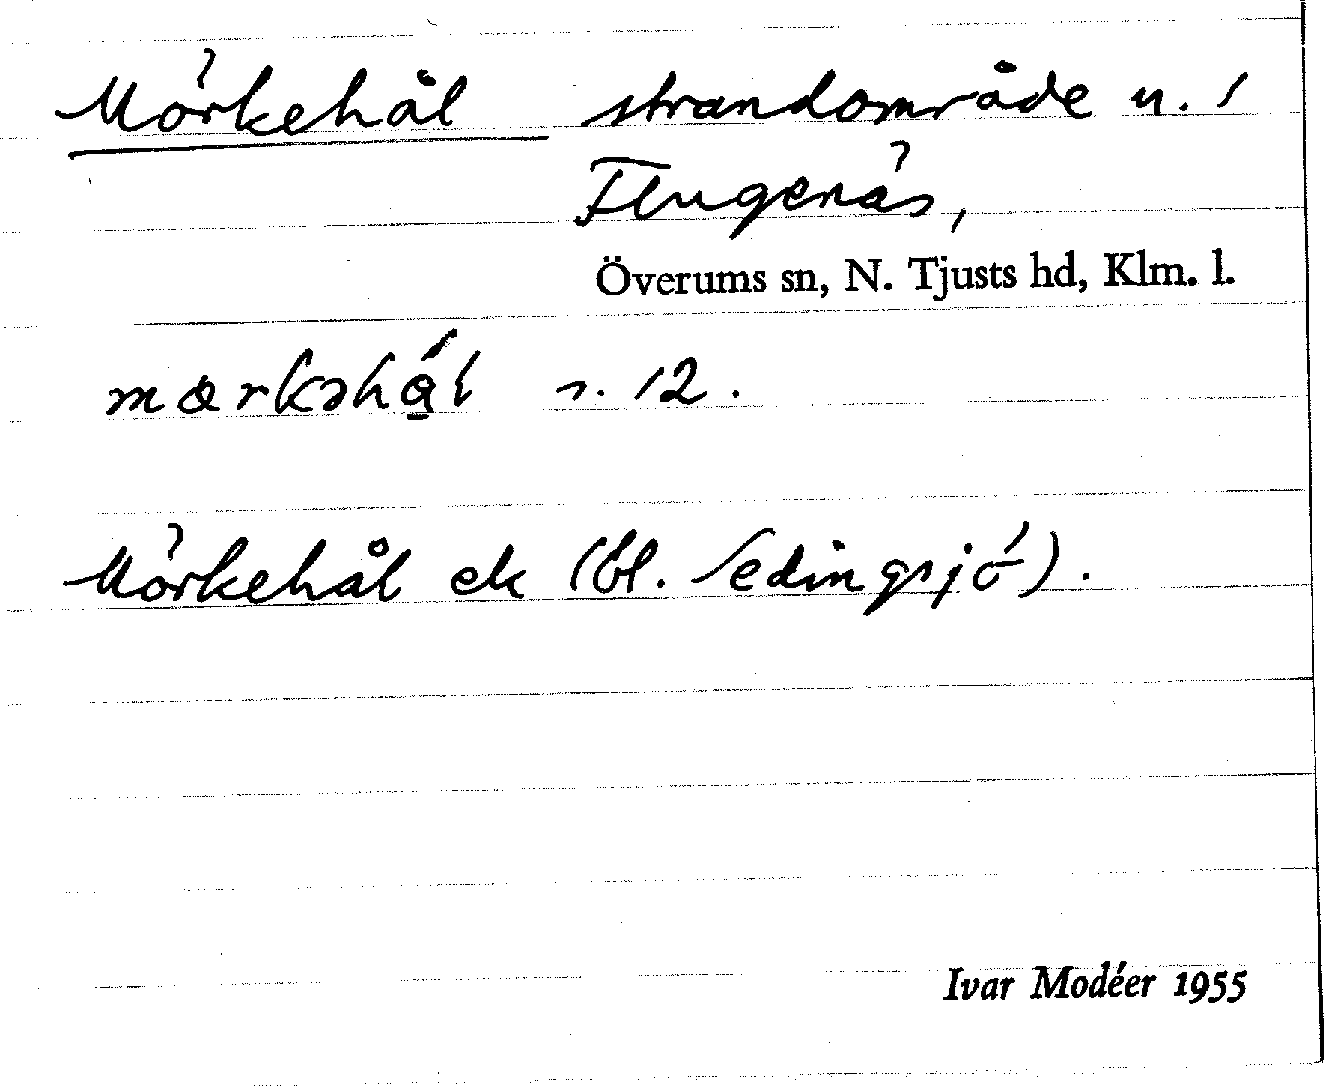 Mörkehål strandområde u. 1
Flugenäs,
Överums sn, N. Tjusts hd, Klm. l.
mœrkəhǻ̱l s. 12.
Mörkehål ek (bl. Sedingsjö).
Ivar Modéer 1955